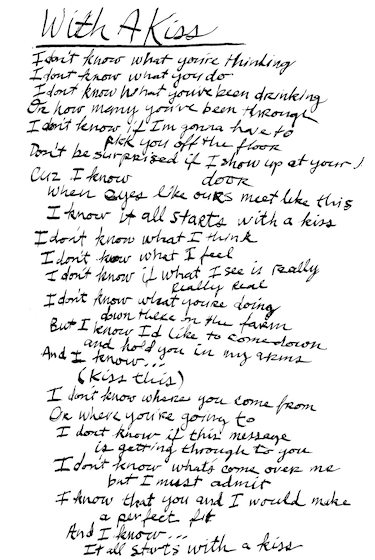 With A Kiss
I don't know what you're thinking
I dont know what you do
I dont know what you've been drinking
Or how many you've been through
I don't know if I'm gonna have to
pick you off the floor
Don't be surprised if I show up at your
door
Cuz I know
When eyes like ours meet like this
I know it all starts with a kiss
I don't know what I think
I don't know what I feel
I don't know if what I see is really
really real
I don't know what you're doing
down there on the farm
But I know I'd like to come down
and hold you in my arms
And I know...
(Kiss this)
I don't know where you come from
Or where you're going to
I dont know if this message
is getting through to you
I don't know what's come over me
but I must admit
I know that you and I would make
a perfect fit
And I know...
It all starts with a kiss